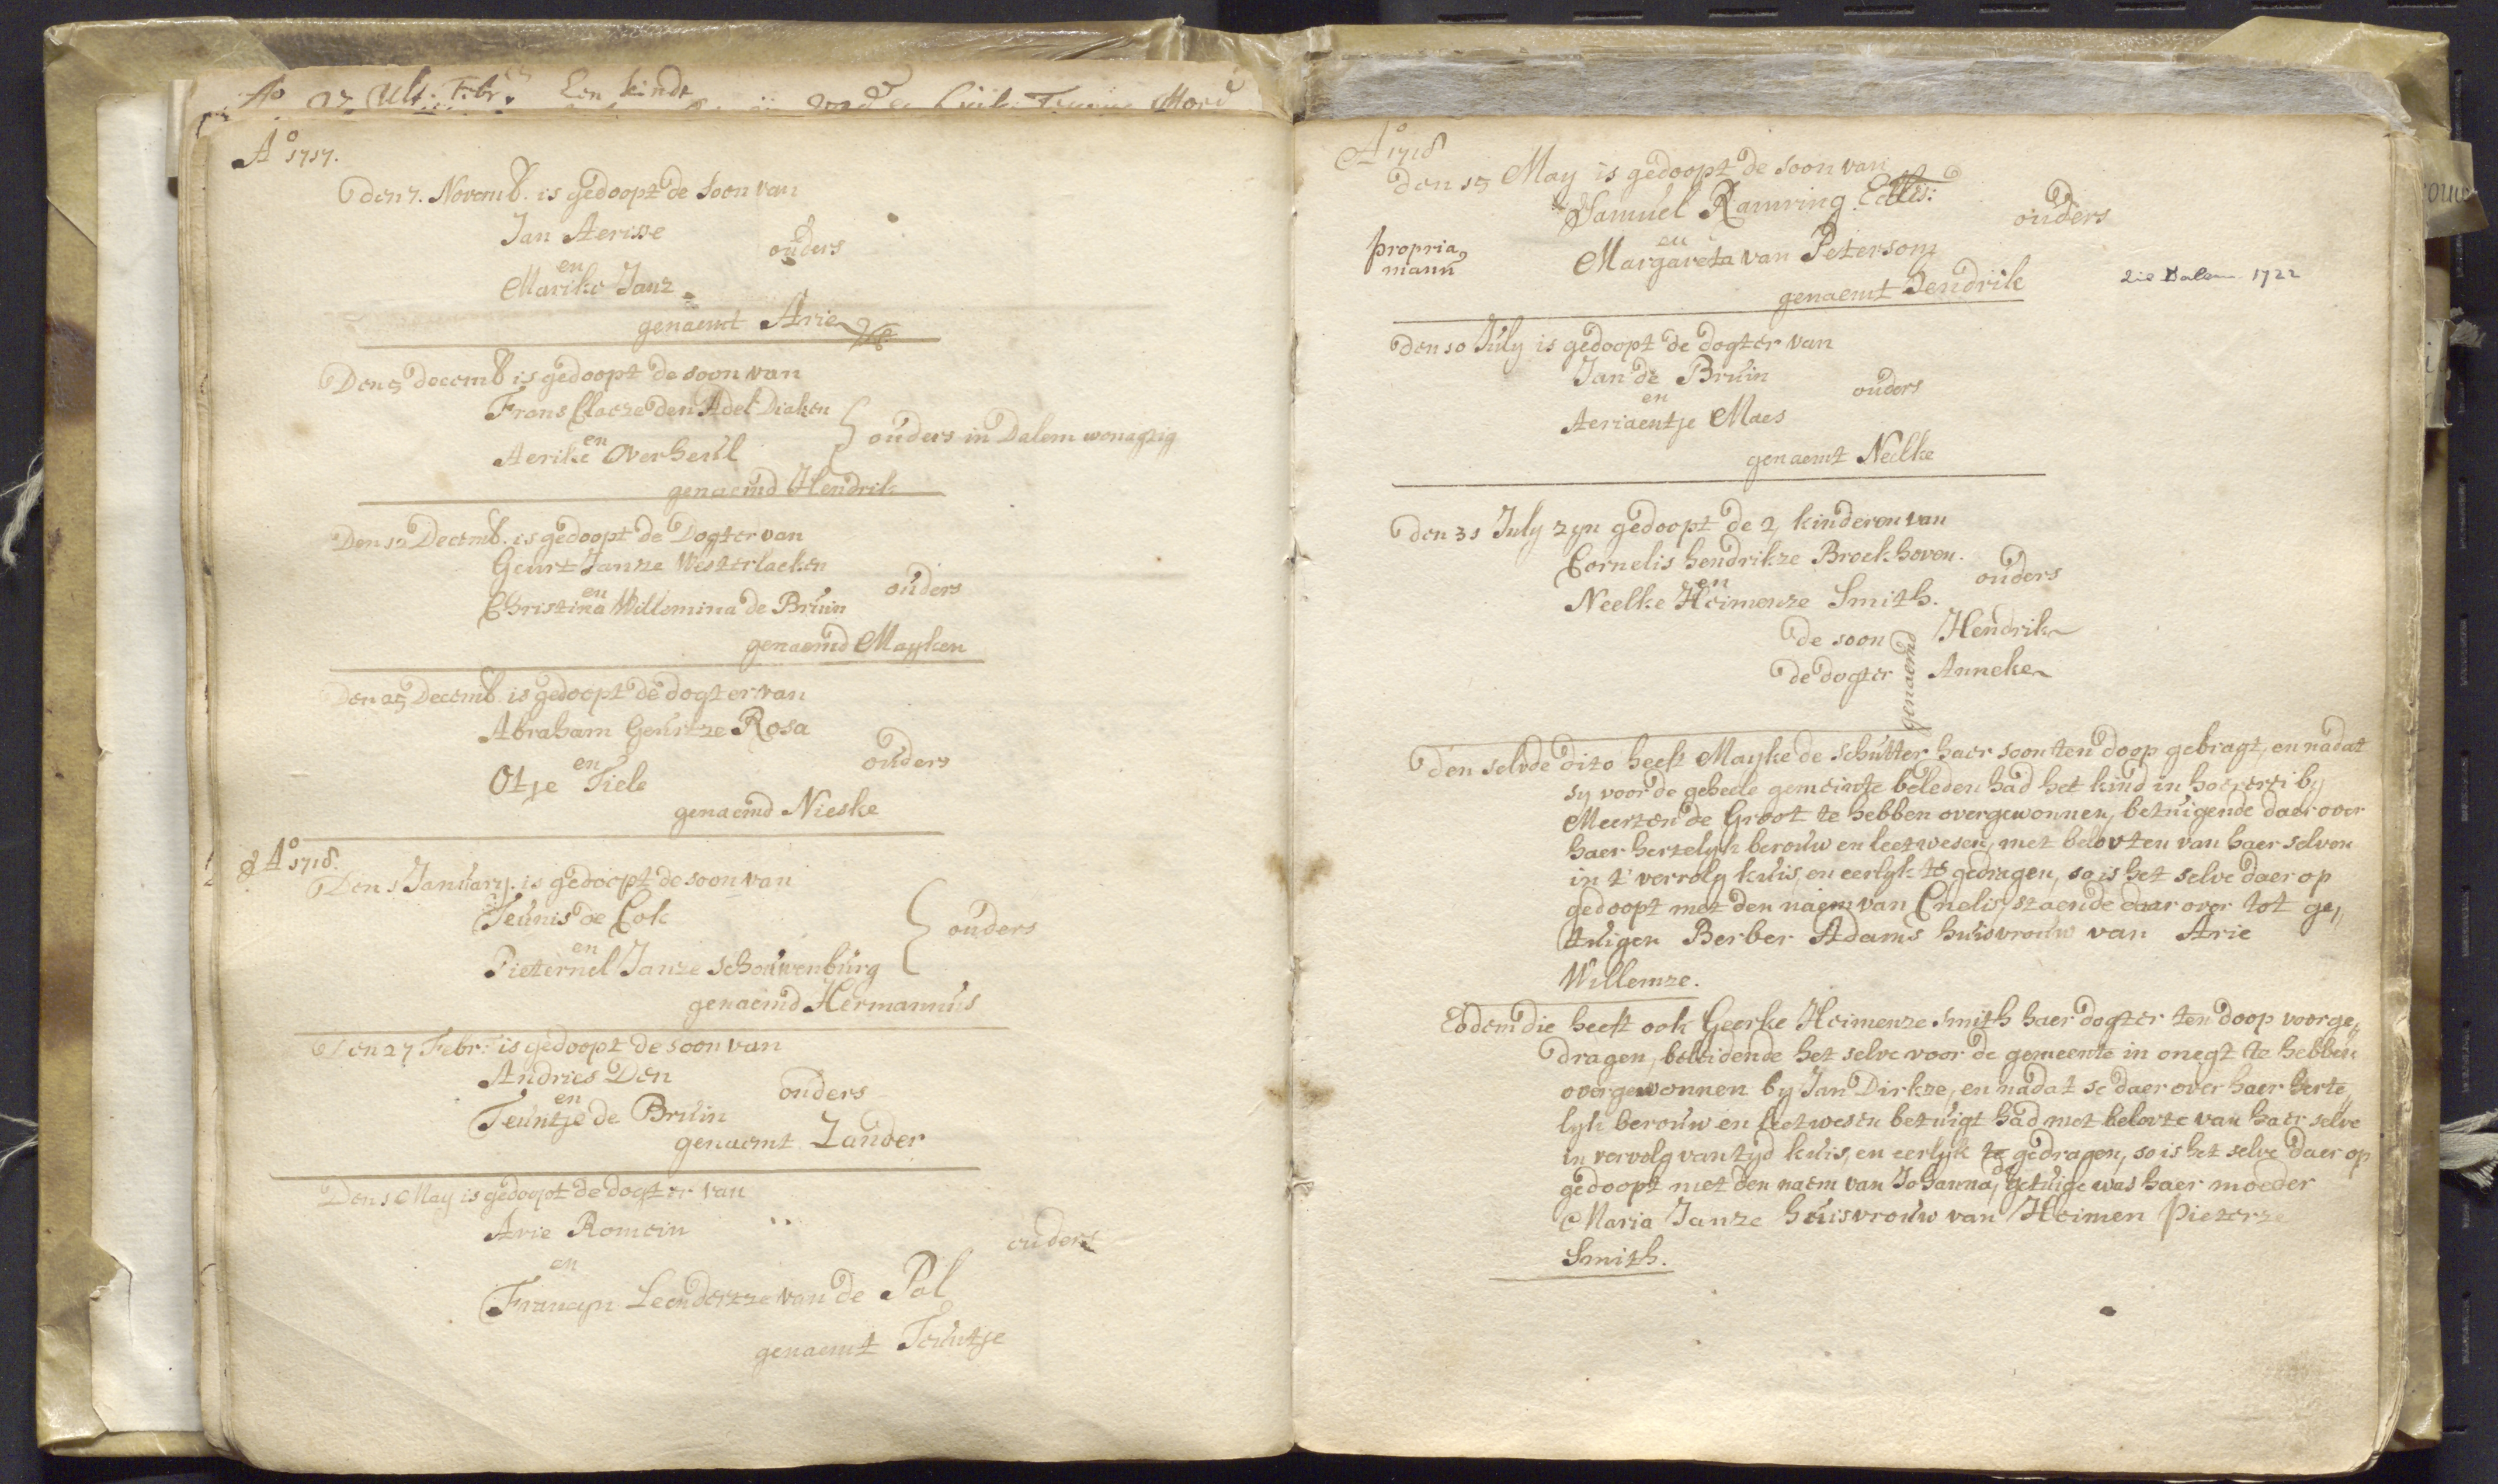 Ao 27 Ult. Febr. Een kindt
Ao 1717.
Den 7. Novemb. is gedoopt de soon van
Jan Aerisse
en
ouders
Marike Janz
genaemt Arie
Den 5 Decemb is gedoopt de soon van
Frans Claeze den Adel Diaken
en
ouders in Dalem wonagtig
Aerike Overheul
genaemd Hendrik
Den 12 Decemb. is gedoopt de Dogter van
Geurt Janze Westerlaeken
en
ouders
Christina Willemina de Bruin
genaemd Mayken
Den 25 Decemb is gedoopt de dogter van
Abraham Geurtze Rosa
en
ouders
Otje Tiele
genaemd Nieske
Ao 1718.
Den 1 January. is gedoopt de soon van
Teunis de Cok
en
ouders
Pieternel Janze Schouwenburg
genaemd Hermannus
Den 27 Febr: is gedoopt de soon van
Andries Den
en
ouders
Teuntje de Bruin
genaemt Zander
Den 1 May is gedoopt de dogter van
Arie Romein
en
ouders
Francyn Leendertze van de Pol
genaemt Teuntje
Ao 1718
Den 15 May is gedoopt de soon van
Samuel Ramring
ouders
en
propria
manu
Margareta van Petersom
genaemt Hendrik
vie Dalem 1722
Den 10 July is gedoopt de dogter van
Jan de Bruin
en
ouders
Aeriaentje Maes
genaemt Neelke
Den 31 July zyn gedoopt de 2 kinderen van
Cornelis Hendrikze Broekhoven.
en
ouders
Neelke Heimenze Smith.
de soon Hendrik
genaemd
de dogter Anneke
Den selvde dito heeft Mayke de Schutter haer soon ten doop gebragt, en nadat
sy voor de geheele gemeinte beleden had het kind in hoererei by
Meerten de Groot te hebben overgewonnen, betuigende daer over
haer hertelyk berouw en leetwesen, met belovten van haer selven
in 't vervolg kuis, en eerlyk te gedragen, so is het selve daer op
gedoopt met den naem van Cnelis, staende daar over tot ge„
tuigen Berber Adams huisvrouw van Arie
Willemze.
Eodem die heeft ook Geerke Heimenze Smith haer dogter ten doop voorge„
dragen, beleidende het selve voor de gemeente in onegt te hebben
overgewonnen by Jan Dirkze, en nadat se daer over haer herte„
lyk berouw en leetwesen betuigt had met belovte van haer selve
in vervolg van tyd kuis, en eerlyk te gedragen, so is het selve daer op
gedoopt met den naem van Johanna, de getuige was haer moeder
Maria Janze huisvrouw van Heimen Pieterze
Smith.